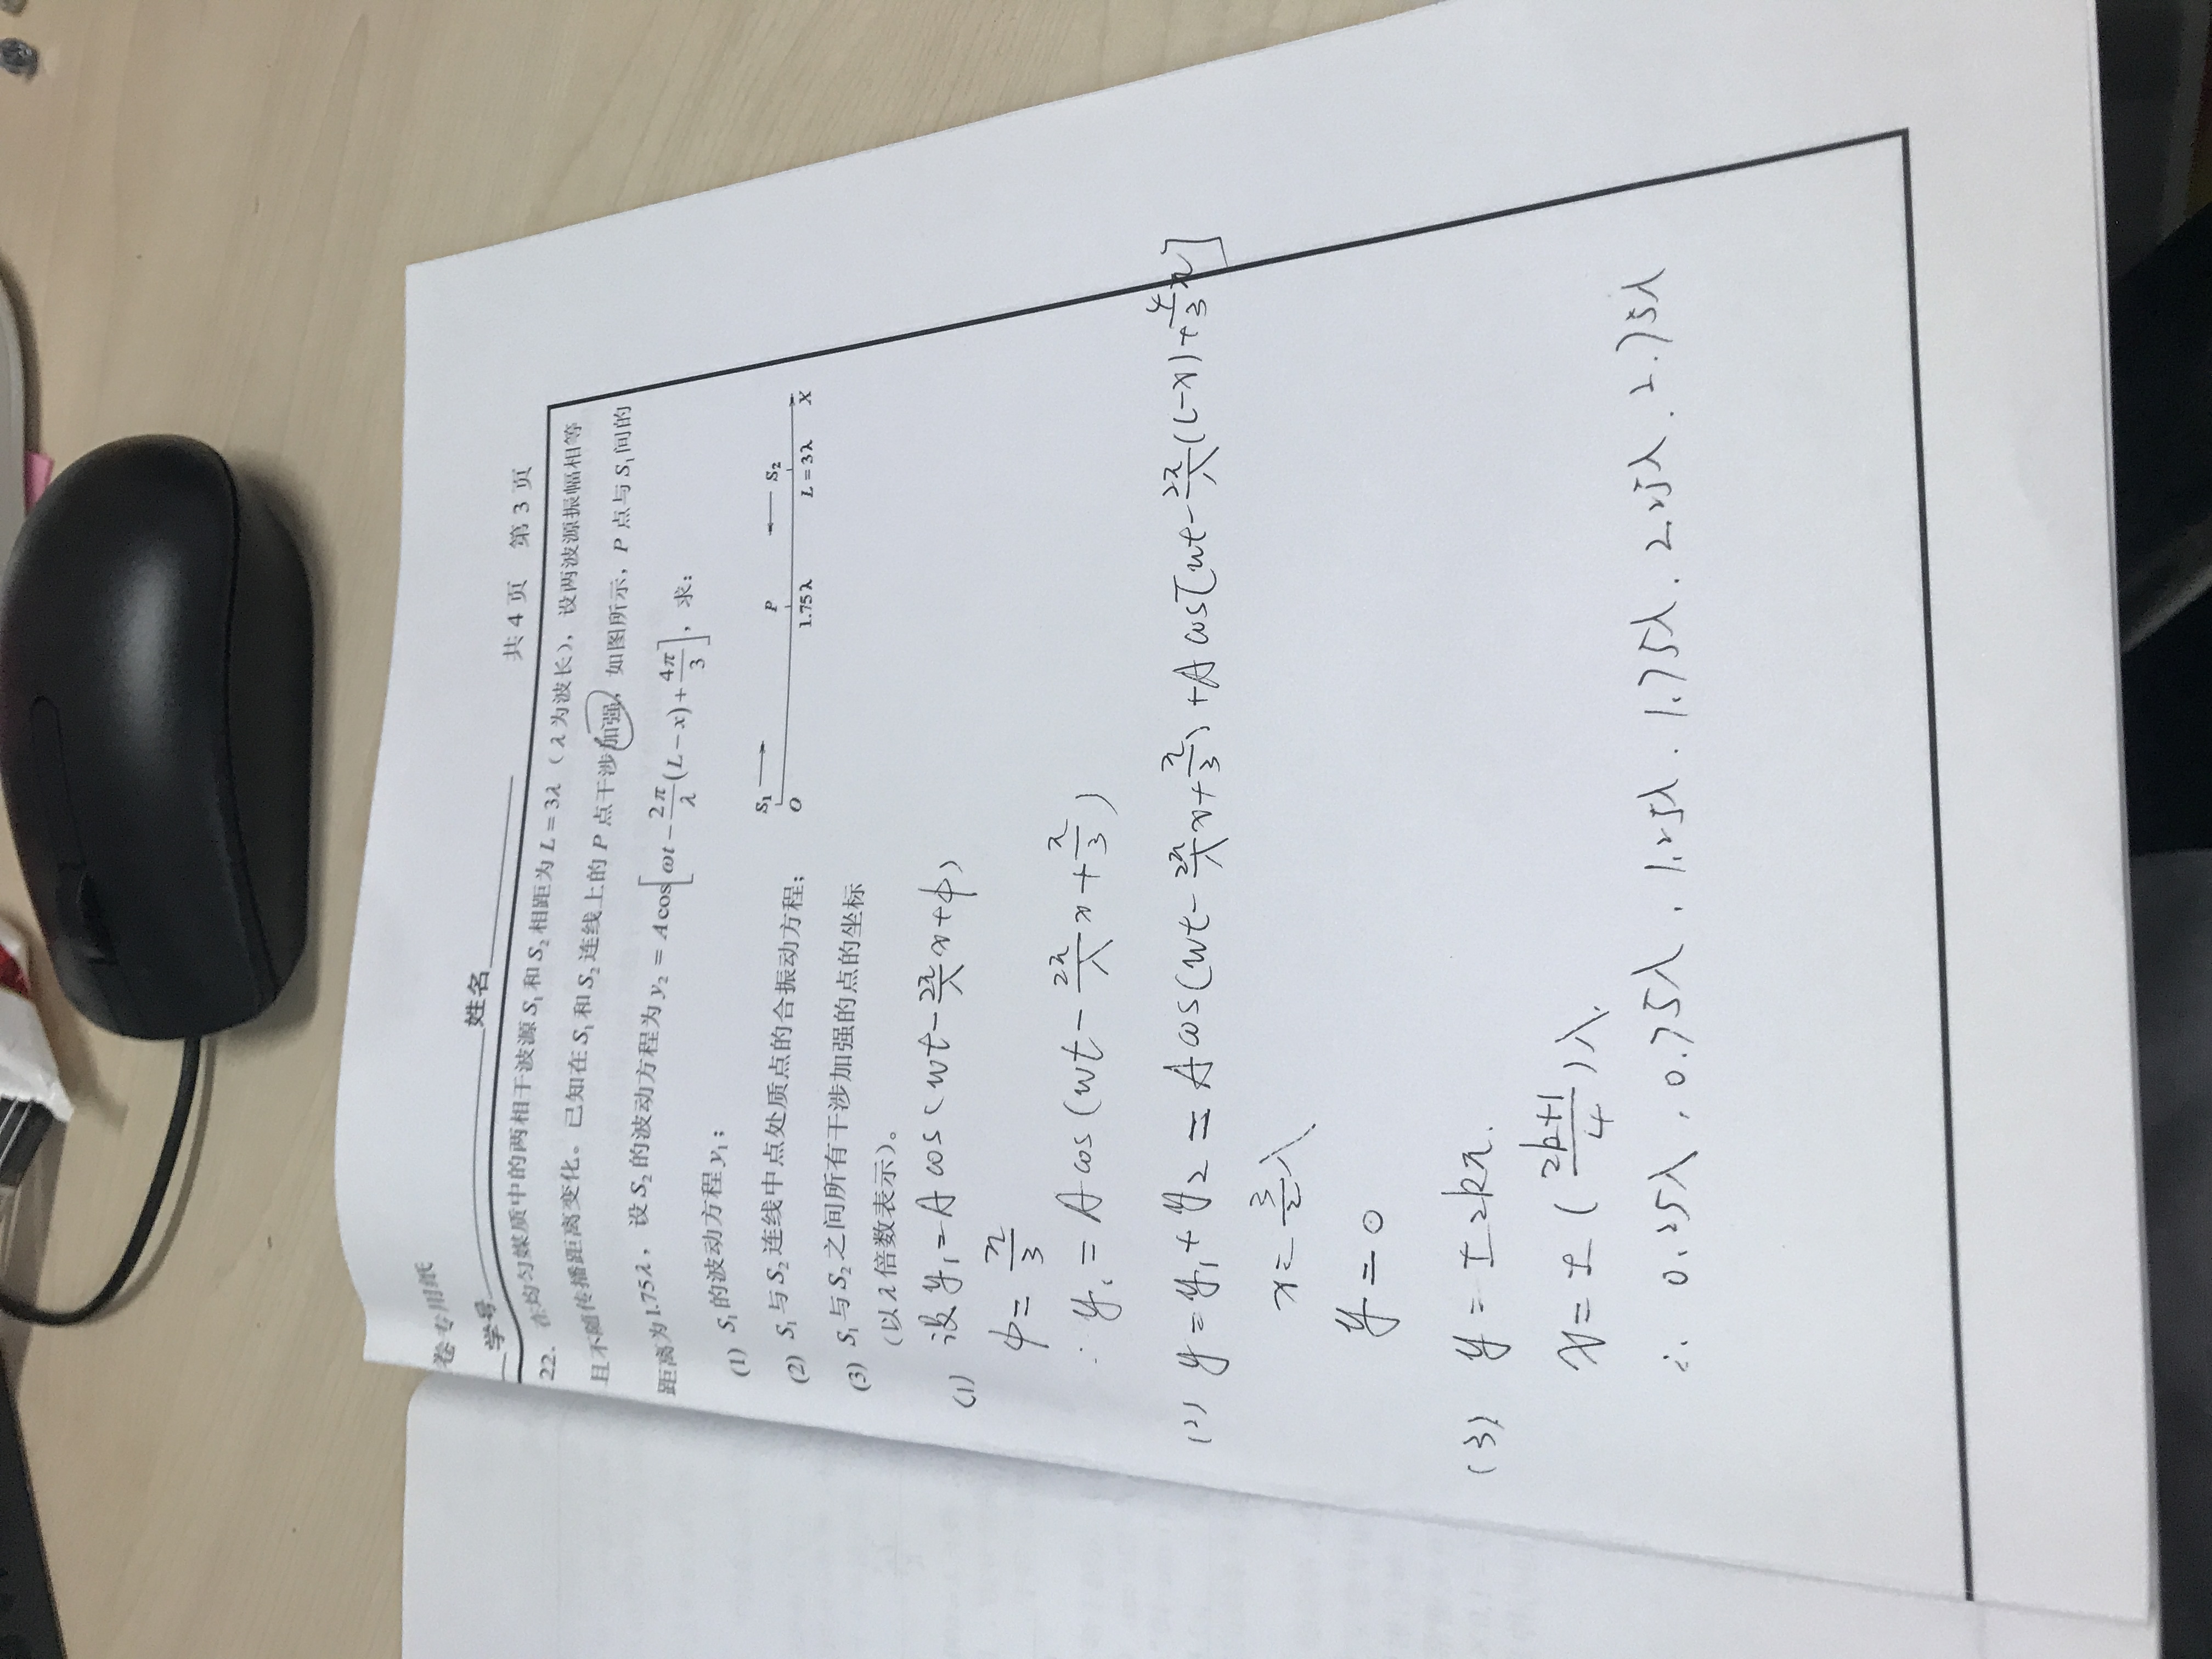 卷专用纸
学号 姓名
共4页 第3页
22. 在均匀媒质中的两相干波源S₁和S₂相距为L=3λ（λ为波长），设两波源振幅相等
且不随传播距离变化。已知在S₁和S₂连线上的P点干涉加强，如图所示，P点与S₁间的
距离为1.75λ，设S₂的波动方程为y₂ = A cos[ωt − 2π/λ (L−x) + 4π/3]，求：
(1) S₁的波动方程y₁；
(2) S₁与S₂连线中点处质点的合振动方程；
(3) S₁与S₂之间所有干涉加强的点的坐标
（以λ倍数表示）。
S₁ P S₂
O 1.75λ L=3λ X
(1) 设y₁=A cos(wt−2π/λ x+φ)
φ= π/3
∴ y₁ = A cos(wt − 2π/λ x + π/3)
(2) y=y₁+y₂ = A cos(wt−2π/λ x+π/3)+A cos[wt−2π/λ(L−x)+4/3π]
x= 3/2 λ
y=0
(3) y = ±2kπ.
x= ±(2k+1/4)λ.
∴ 0.25λ, 0.75λ, 1.25λ. 1.75λ. 2.25λ. 2.75λ